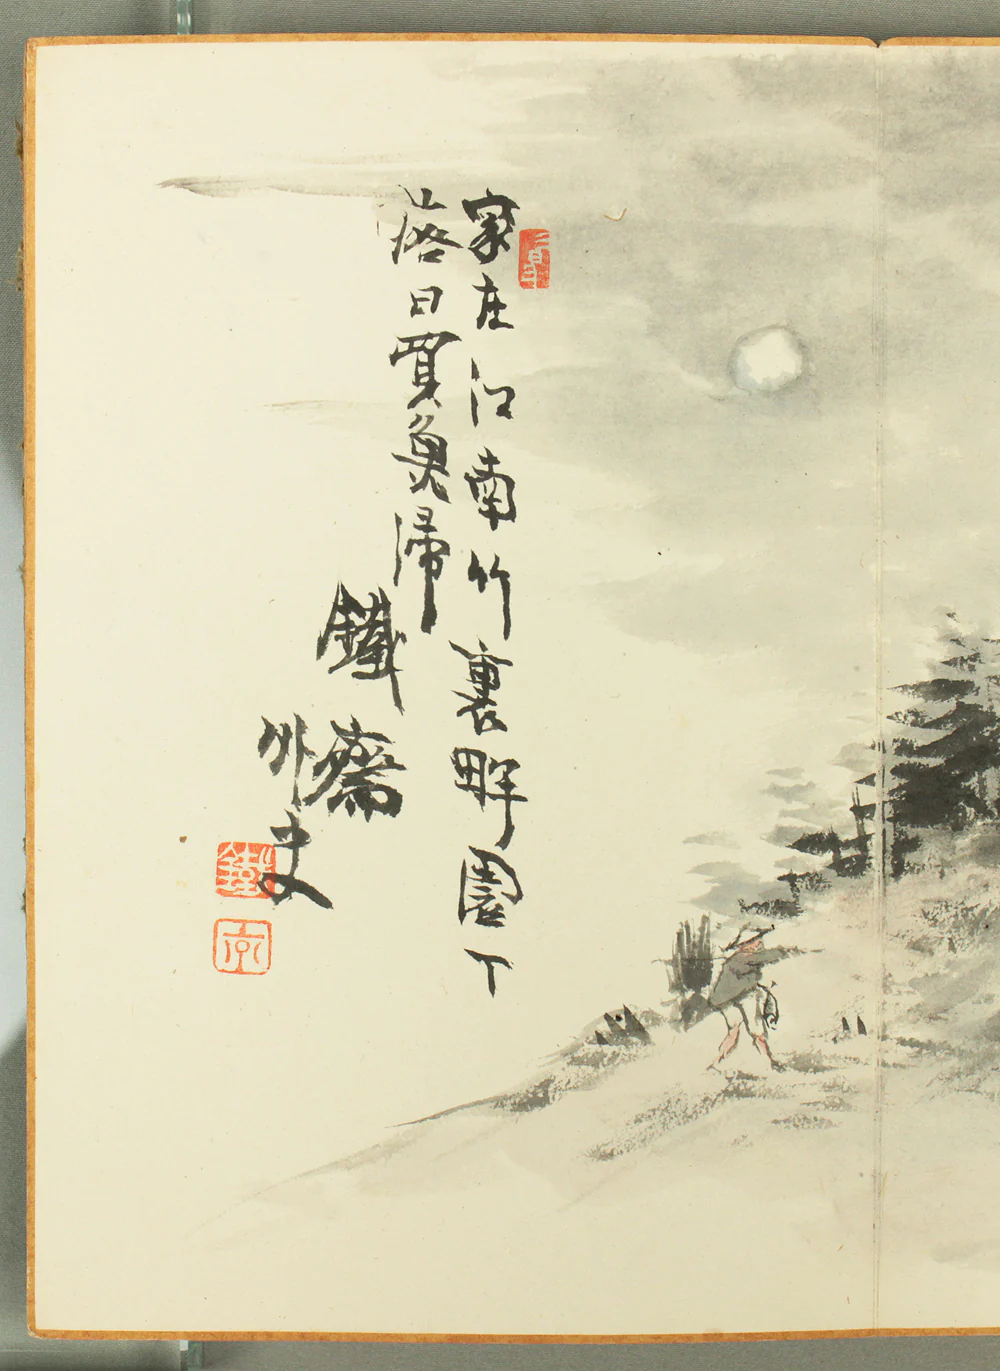 家在江南竹裏畔園丁
落日買魚歸
鐵齋
外史
鐵